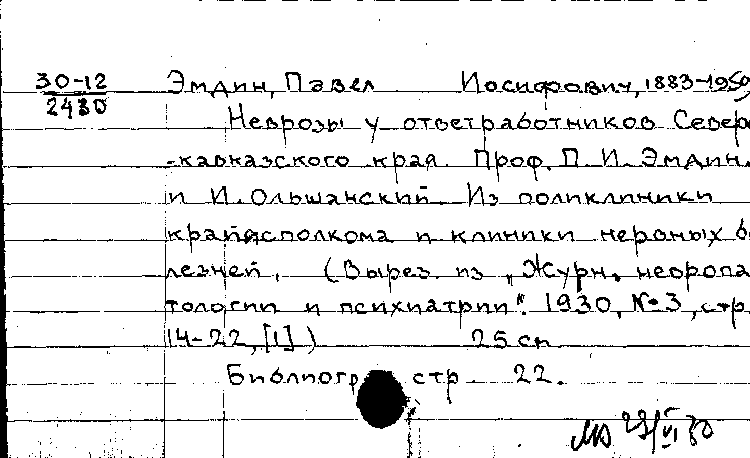 30-12
2430
Эмдин, Павел Иосифович, 1883-1959
Неврозы у ответработников Северо
-кавказского края. Проф. П. И. Эмдин.
и И. Ольшанский. Из поликлиники
крайисполкома и клиники нервных бо
лезней. (Вырез. из „Журн. невропа
тологии и психиатрии". 1930, № 3, стр.
14-22, [1])   25 сп
Библиогр стр. 22.